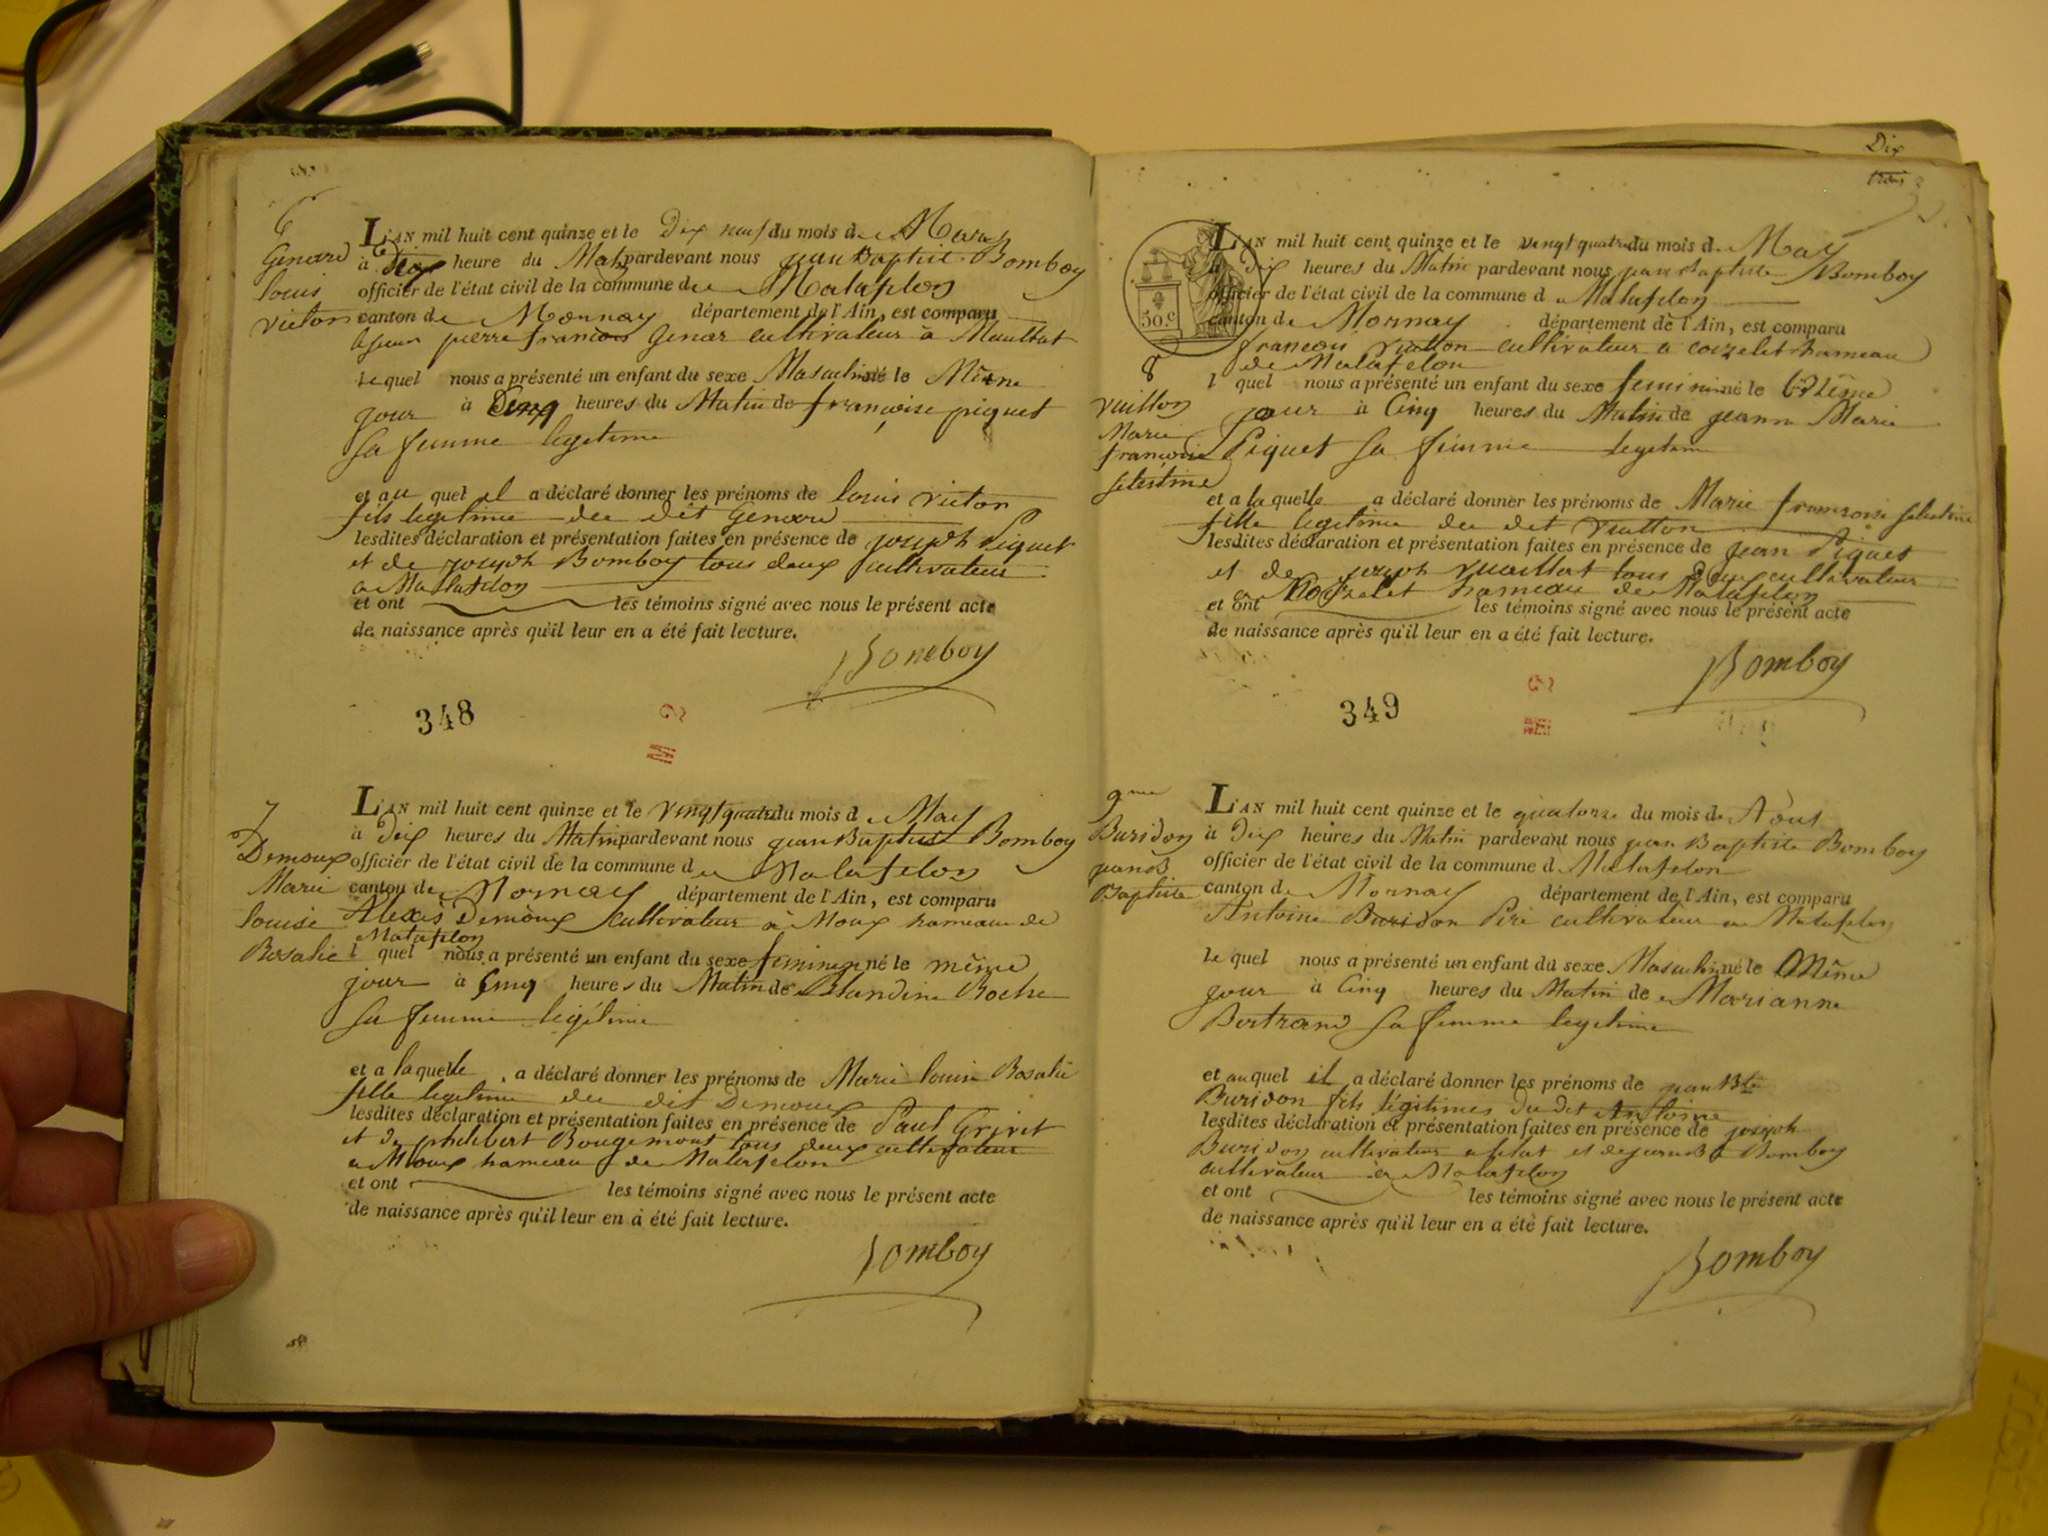 6
Genard
louis
victor
L'AN mil huit cent quinze et le Dix neuf du mois de Mars
à Dix heure du Matin pardevant nous jean Baptiste Bomboy
officier de l'état civil de la commune de Matafelon
canton de Mornay département de l'Ain, est comparu
pierre françois Genard cultivateur à
Lequel nous a présenté un enfant du sexe Masculin né le Même
jour à Cinq heures du Matin de françoise piquet
sa femme legitime
et au quel il a déclaré donner les prénoms de louis victor
fils legitime du dit Genard
lesdites déclaration et présentation faites en présence de joseph Piquet
et de joseph Bomboy tous deux cultivateur
a Matafelon
et ont les témoins signé avec nous le présent acte
de naissance après qu'il leur en a été fait lecture.
Bomboy
348
7
Demoux
Marie
louise
Rosalie
L'AN mil huit cent quinze et le vingt quatre du mois de May
à Dix heures du Matin pardevant nous jean Baptiste Bomboy
officier de l'état civil de la commune de Matafelon
canton de Mornay département de l'Ain, est comparu
Alexis Demoux cultivateur à Moux hameau de
Matafelon
l quel nous a présenté un enfant du sexe feminin né le même
jour à Cinq heures du Matin de Blandine Roche
sa femme legitime
et a laquelle a déclaré donner les prénoms de Marie louise Rosalie
fille legitime du dit Demoux
lesdites déclaration et présentation faites en présence de Paul Grivet
et de philibert Bougemont tous deux cultivateur
a Moux hameau de Matafelon
et ont les témoins signé avec nous le présent acte
de naissance après qu'il leur en a été fait lecture.
Bomboy
Dix
trois
50.c
8
vuitton
Marie
françoise
selestine
L'AN mil huit cent quinze et le vingt quatre du mois de May
à Dix heures du Matin pardevant nous jean Baptiste Bomboy
officier de l'état civil de la commune de Matafelon
canton de Mornay département de l'Ain, est comparu
françois vuitton cultivateur a corzelet hameau
de Matafelon
l quel nous a présenté un enfant du sexe feminin né le même
jour à Cinq heures du Matin de jeanne Marie
Piquet sa femme legitime
et a la quelle a déclaré donner les prénoms de Marie françoise selestine
fille legitime du dit vuitton
lesdites déclaration et présentation faites en présence de jean Piquet
et de joseph tous deux cultivateur
a Corzelet hameau de Matafelon
et ont les témoins signé avec nous le présent acte
de naissance après qu'il leur en a été fait lecture.
Bomboy
349
9me
Buridon
jean B
Baptiste
L'AN mil huit cent quinze et le quatorze du mois de Aout
à Dix heures du Matin pardevant nous jean Baptiste Bomboy
officier de l'état civil de la commune d Matafelon
canton de Mornay département de l'Ain, est comparu
Antoine Buridon Pere cultivateur a Matafelon
Le quel nous a présenté un enfant du sexe Masculin né le Même
jour à Cinq heures du Matin de Marianne
Bertrand sa femme legitime
et au quel il a déclaré donner les prénoms de jean Bte
Buridon fils légitimes du dit Antoine
lesdites déclaration et présentation faites en présence de joseph
Buridon cultivateur et de jean B Bomboy
cultivateur a Matafelon
et ont les témoins signé avec nous le présent acte
de naissance après qu'il leur en a été fait lecture.
Bomboy